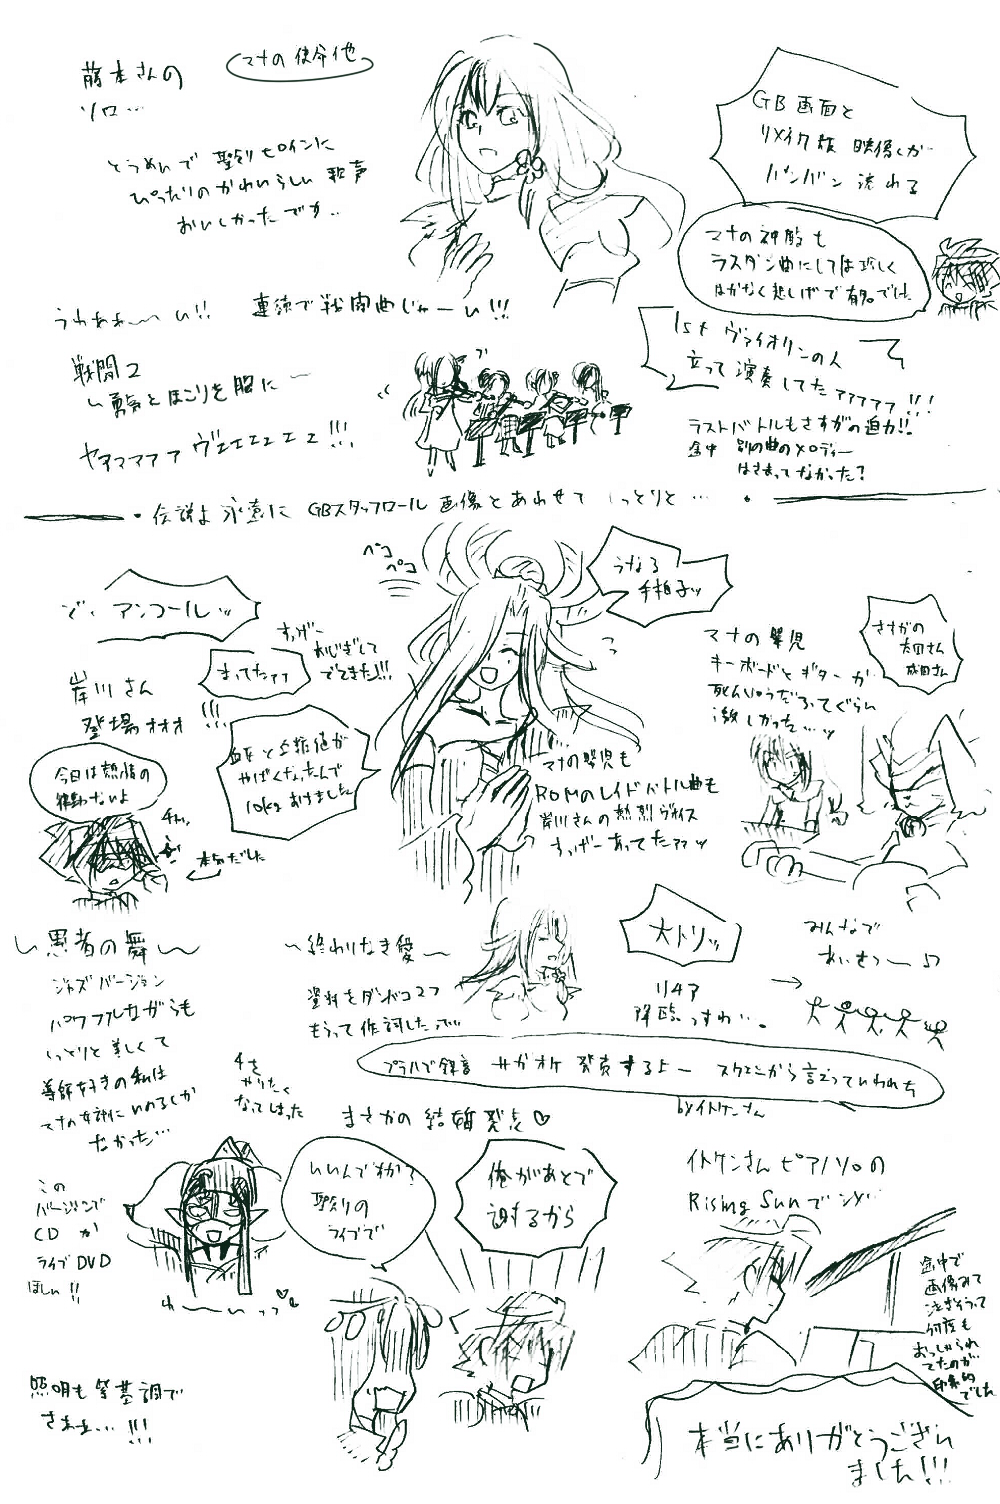 藤本さんの
ソロ…
マナの使命他
とうめいで 聖剣ヒロインに
ぴったりのかわいらしい歌声
おいしかったです..
GB画面と
リメイク版 映像が
バンバン流れる
マナの神殿も
ラスダン曲にしては珍しく
はかなく悲しげで
うわぁぁ〜い!! 連続で戦闘曲じゃーい!!!
1st ヴァイオリンの人
立って演奏してたァァァァァ!!!
戦闘2
〜勇気とほこりを胸に〜
ラストバトルもさすがの迫力!!
途中 別の曲のメロディー
はさまってなかった?
・伝説よ永遠に GBスタッフロール 画像とあわせて しっとりと…・
ペコ
ペコ
うなる
手拍子ッ
アンコールッ
すっげー
おじぎして
でてきた!!!
まってたァァ
!!!
岸川さん
登場ォォォ
今日は熱情の
律動ないよ
やばくなったんで
10kgおけました
本気でした
マナの聖児
キーボードとギターが
死んじゅうだろってぐらい
激しかった…ッ
さすがの
太田さん
成田さん
マナの聖児も
ROMのレイドバトル曲も
岸川さんの熱烈ヴォイス
すっげーあってたァァッ
〜愚者の舞〜
ジャズバージョン
パワフルながらも
しっとりと美しくて
導師好きの私は
マナの女神にいのるしか
なかった…
〜終わりなき愛〜
資料をダンボコ2つ
もらって作詞したって…
大トリッ
リィア
降臨っすわ…。
みんなで
あいさつ〜♫
→
プラハで録音 サガオケ 発売するよー スクエニから言えっていわれた
byイトケンさん
まさかの結婚発表♡
いいんですか?
聖剣の
ライブで
俺があとで
謝するから
イトケンさんピアノソロの
Rising Sunでシメ…
この
バージョンで
CD か
ライブDVD
ほしい!!
わ〜〜いっっ
照明も紫基調で
さぁぁ…!!!
途中で
画像みて
泣きそうって
何度も
おっしゃられ
てたのが
印象的
でした
本当にありがとうござい
ました!!!